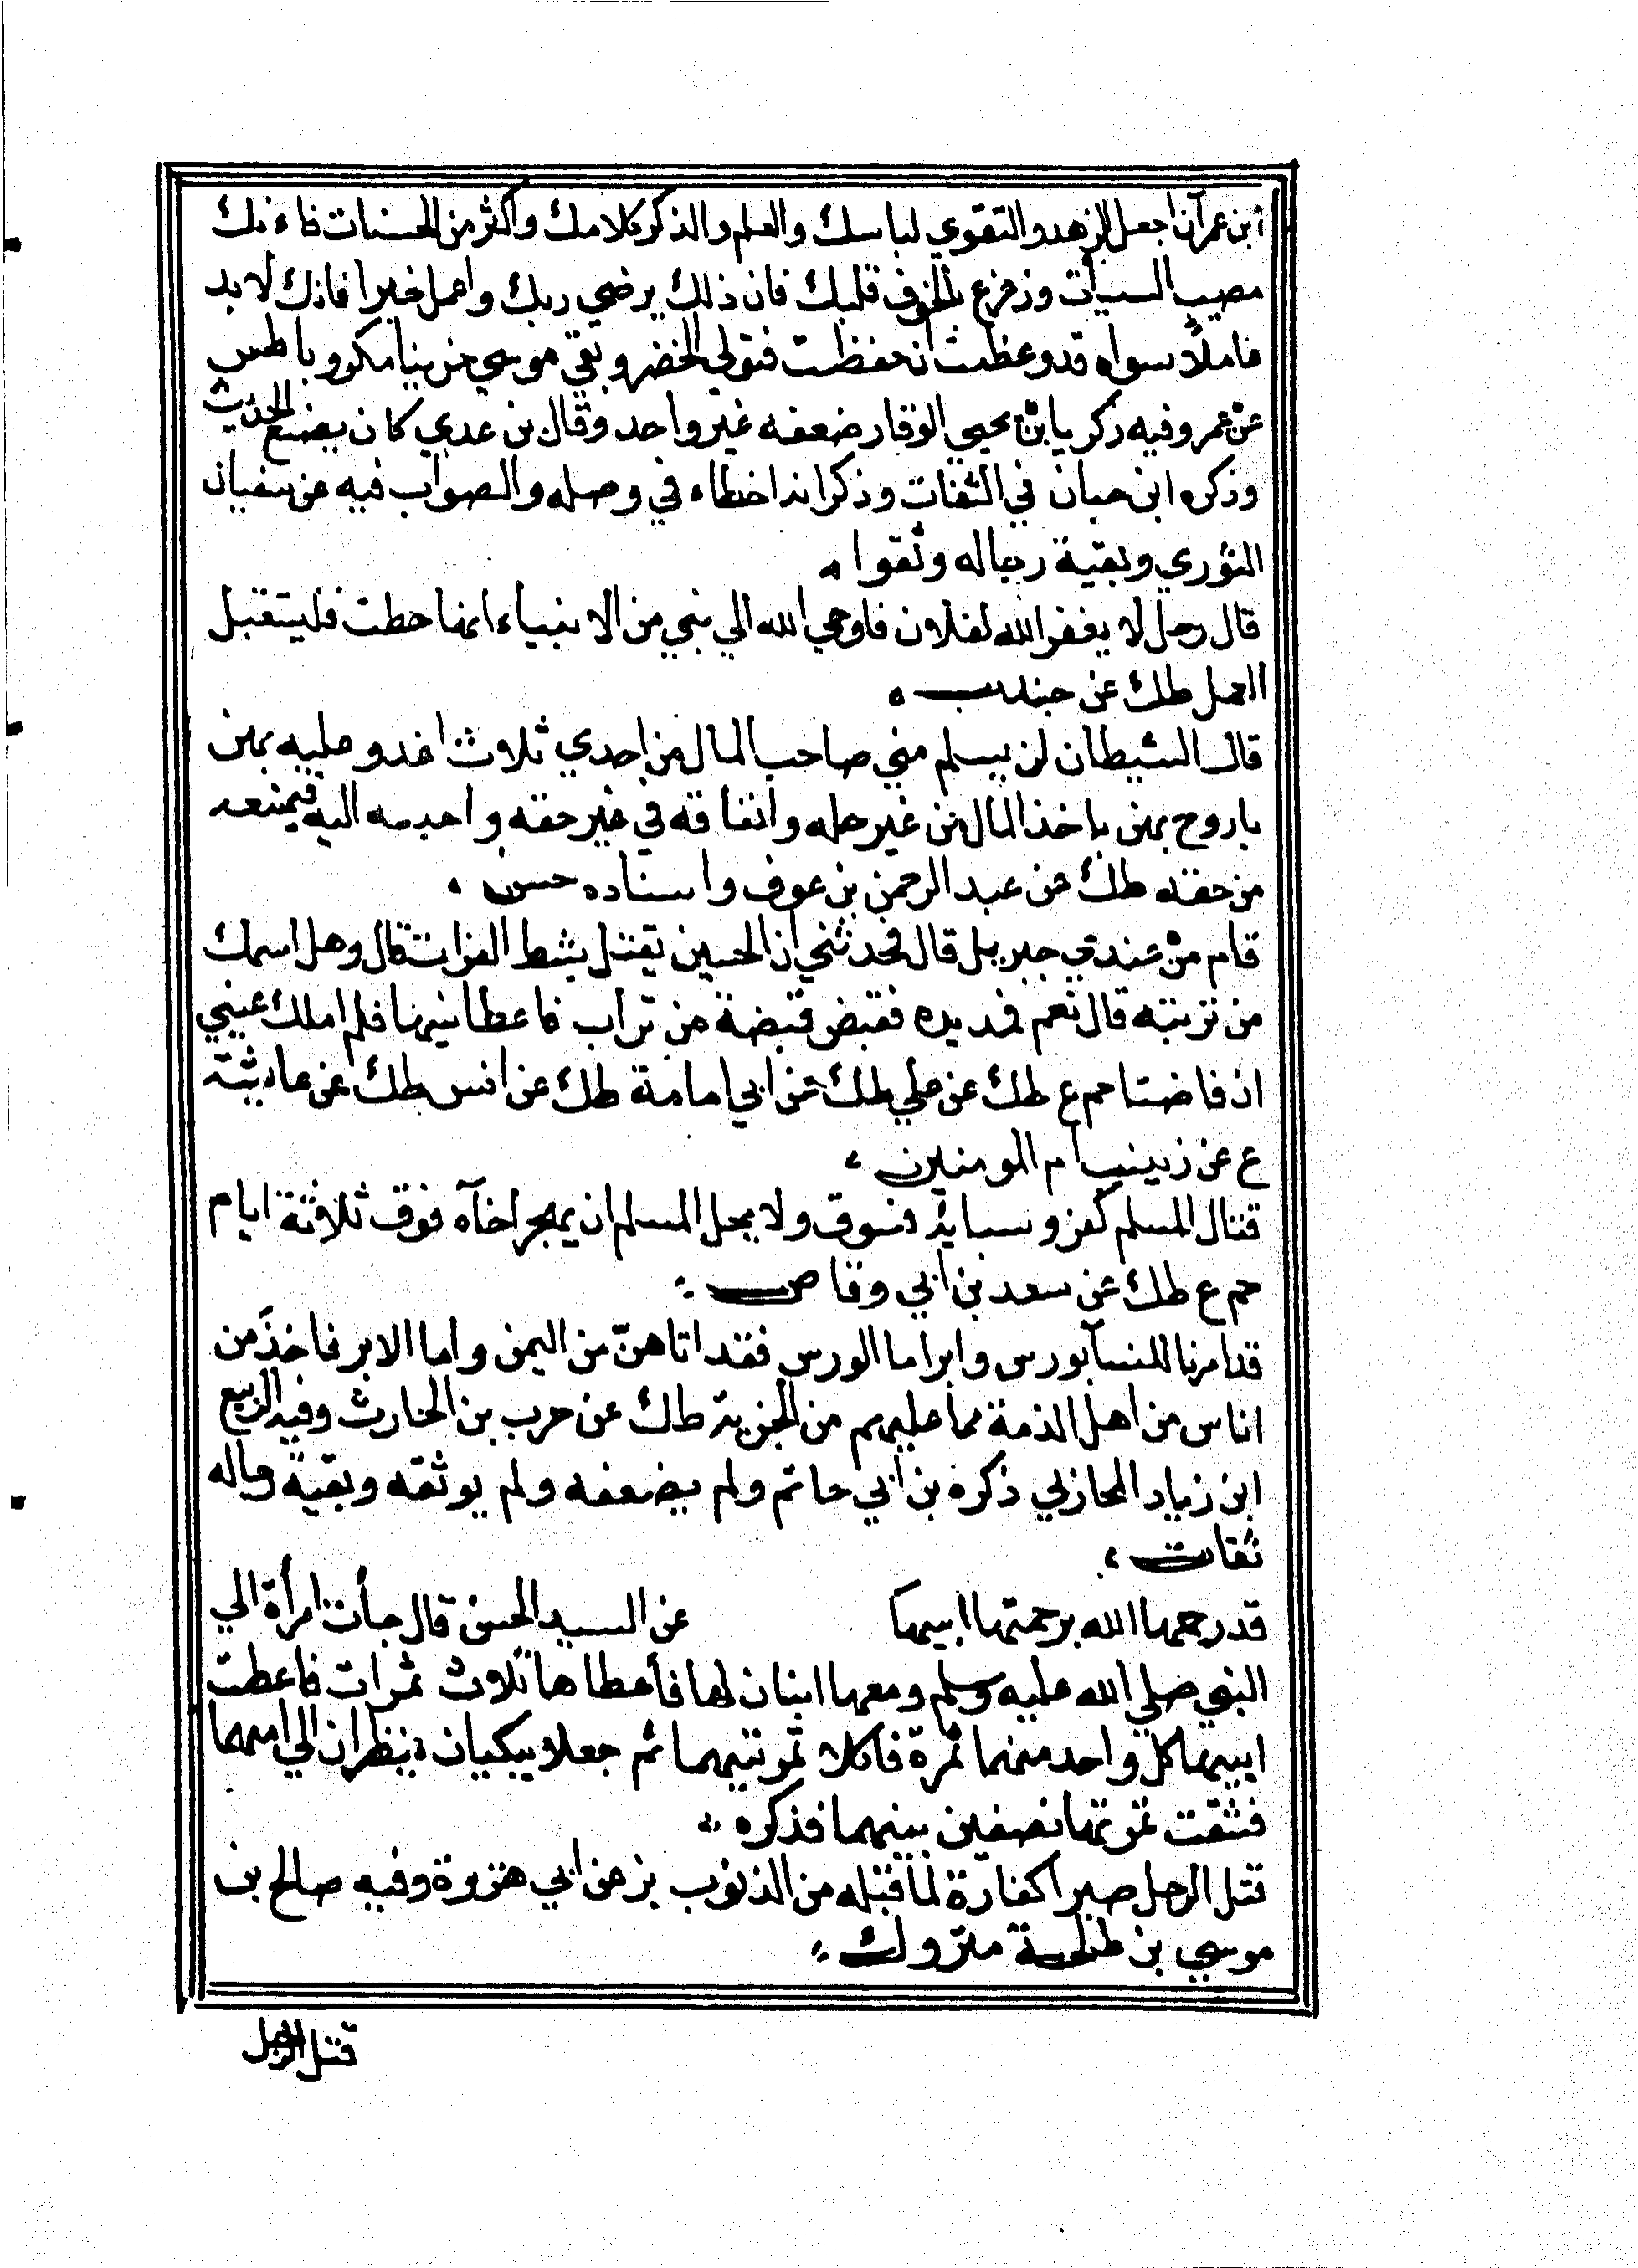 ابن عمران اجعل الزهد والتقوي لباسك والعلم والذكر كلامك واكثر من الحسنات فاءنك
مصيب السيات وزعزع بالخوف قلبك فان ذلك يرضي ربك واعمل خيرا فانك لا بد
عاملا سواه قد وعظت ان حفظت فتولي الخضر وبقي موسي حزينا مكروبا طس
عن عمر وفيه زكريا ابن يحيي الوقار ضعفه غير واحد وقال بن عدي كان يضع الحديث
وذكره ابن حبان في الثقات وذكر انه اخطاء في وصله والصواب فيه عن سفيان
الثوري وبقية رجاله وثقوا
قال رجل لا يغفر الله لفلان فاوحي الله الي نبي من الانبياء انها خطت فليستقبل
العمل طك عن جندب
قال الشيطان لن يسلم مني صاحب المال من احدي ثلاث اغدو عليه بهن
باروح بهن باخذ المال من غير حله وانفاقه في غير حقه واحببه اليه فيمنعه
من حقه طك عن عبد الرحمن بن عوف واسناده حسن
قام من عندي جبريل قال فحدثني ان الحسين يقتل بشط الفرات قال وهل اسمك
من تربته قال نعم فمد يده فقبض قبضة من تراب فاعطانيها فلم املك عيني
اذ فاضتا حم ع طك عن علي طك عن ابي امامة طك عن انس طك عن عايشة
ع عن زينب ام المومنين
قتال المسلم كفر وسبابه فسوق ولا يحل المسلم ان يهجر اخاه فوق ثلاثة ايام
حم ع طك عن سعد بن ابي وقاص
قد امرنا للنسا بورس وابر اما الورس فقد اتاهن من اليمن واما الابر فاخذ من
اناس من اهل الذمة مما عليهم من الجزية طك عن حرب بن الحارث وفيه الربيع
ابن زياد المحازلي ذكره بن ابي حاتم ولم يضعفه ولم يوثقه وبقية رجاله
ثقات
قد رحمها الله برحمتها ابيها عن السيد الحسن قال جأت امرأة الي
النبي صلي الله عليه وسلم ومعها ابنان لها فأعطاها ثلاث ثمرات فاعطت
ابنيها كل واحد منهما ثمرة فاكلا تمرتيهما ثم جعلا يبكيان وينظران الي امهما
فشقت تمرتها نصفين بينهما فذكره
قتل الرجل صبرا كفارة لما قبله من الذنوب بز عن ابي هريرة وفيه صالح بن
موسي بن طلحة متروك
قتل الرجل